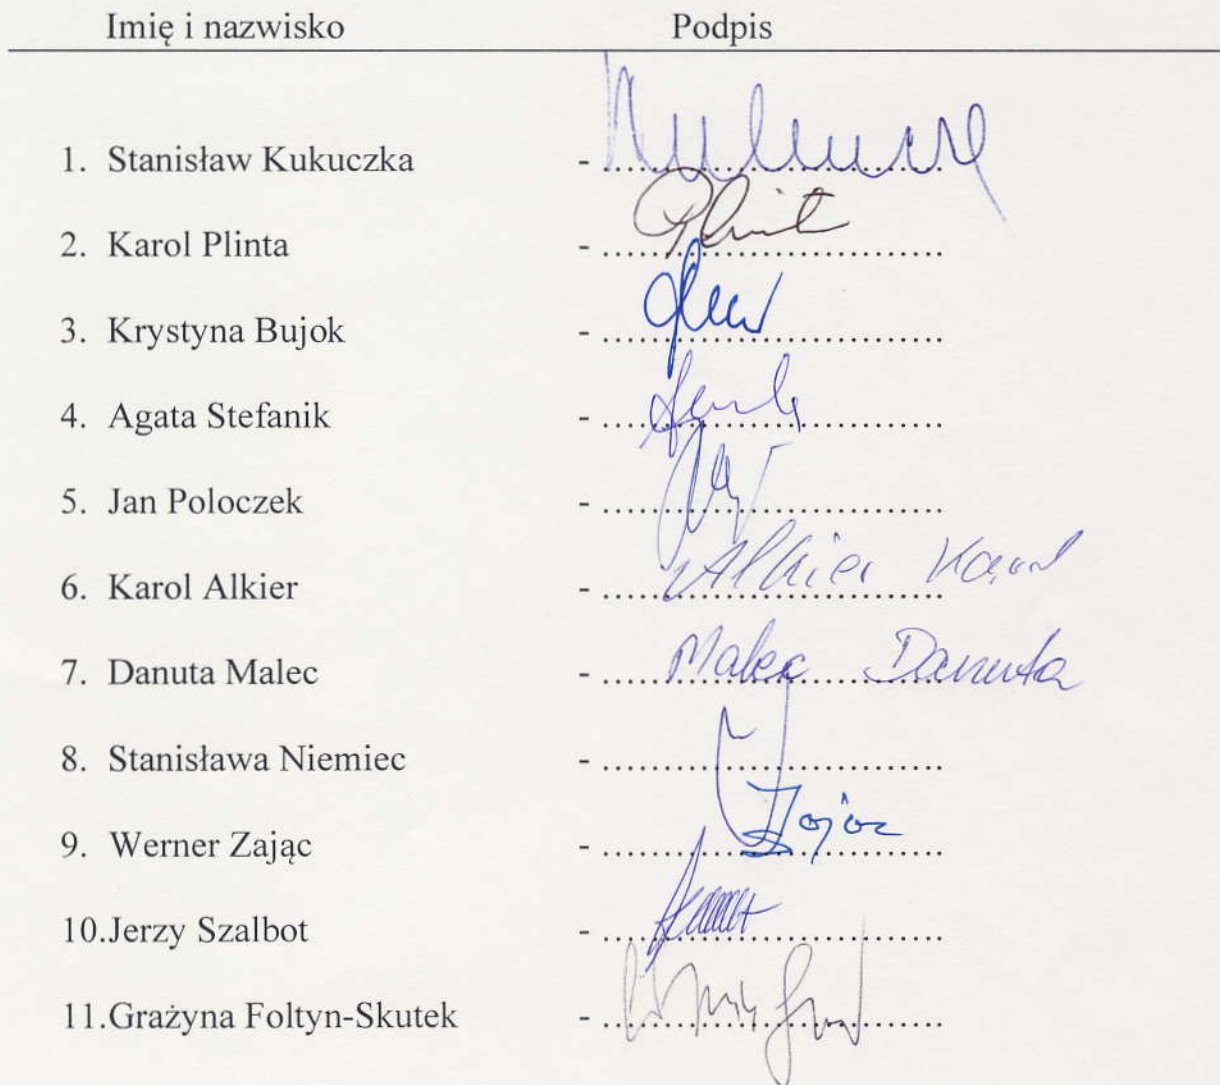 Imię i nazwisko Podpis
1. Stanisław Kukuczka - ..............................
2. Karol Plinta - ..............................
3. Krystyna Bujok - ..............................
4. Agata Stefanik - ..............................
5. Jan Poloczek - ..............................
6. Karol Alkier - .............................. Alkier Karol
7. Danuta Malec - .............................. Malec Danuta
8. Stanisława Niemiec - ..............................
9. Werner Zając - .............................. Zając
10.Jerzy Szalbot - ..............................
11.Grażyna Foltyn-Skutek - ..............................